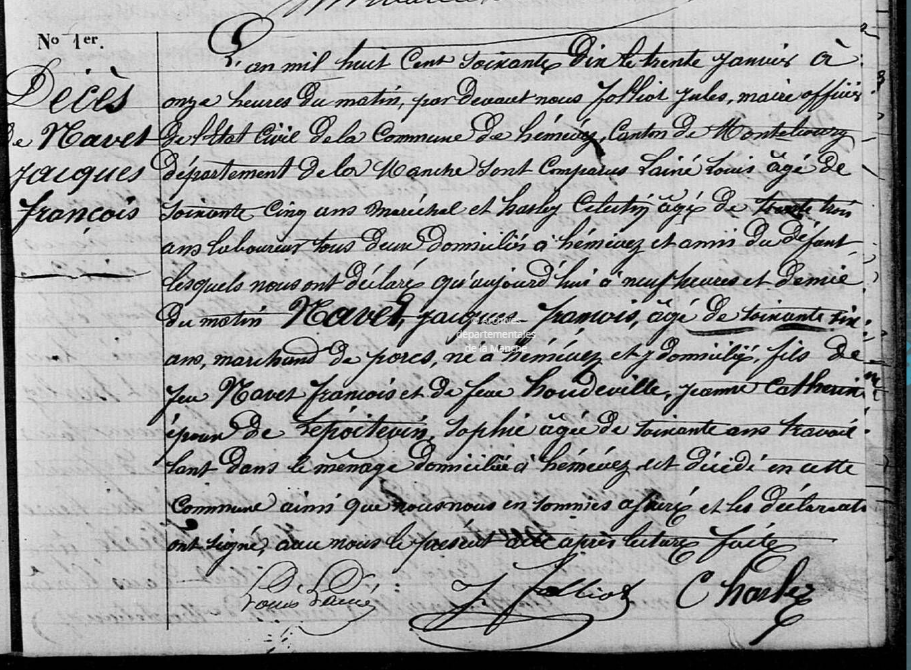 No 1er.
Décès
de Navet
Jacques
François
L'an mil huit Cent soixante Dix le trente Janvier à
onze heures du matin, par devant nous Jolliot Jules, maire officier
de l'Etat Civil de la Commune de hémévez, Canton de Montebourg
département de la Manche sont Comparus Lainé Louis âgé de
soixante Cinq ans maréchal et harley Célestin âgé de trente trois
ans laboureur tous deux domiciliés à hémévez et amis du défunt
lesquels nous ont déclaré qu'aujourd'hui à neuf heures et demie
du matin Navet, Jacques François, âgé de soixante six
ans, marchand de porcs, né à hémévez et y domicilié, fils de
feu Navet François et de feue houdeville, Jeanne Catherine
époux de Lepoitevin, Sophie âgée de soixante ans travail
lant dans le ménage domiciliée à hémévez est décédé en cette
Commune ainsi que nous nous en sommes assuré et les déclarants
ont signé, avec nous le présent acte après lecture faite
Louis Lainé J. Jolliot C harley
archives
départementales
de la Manche